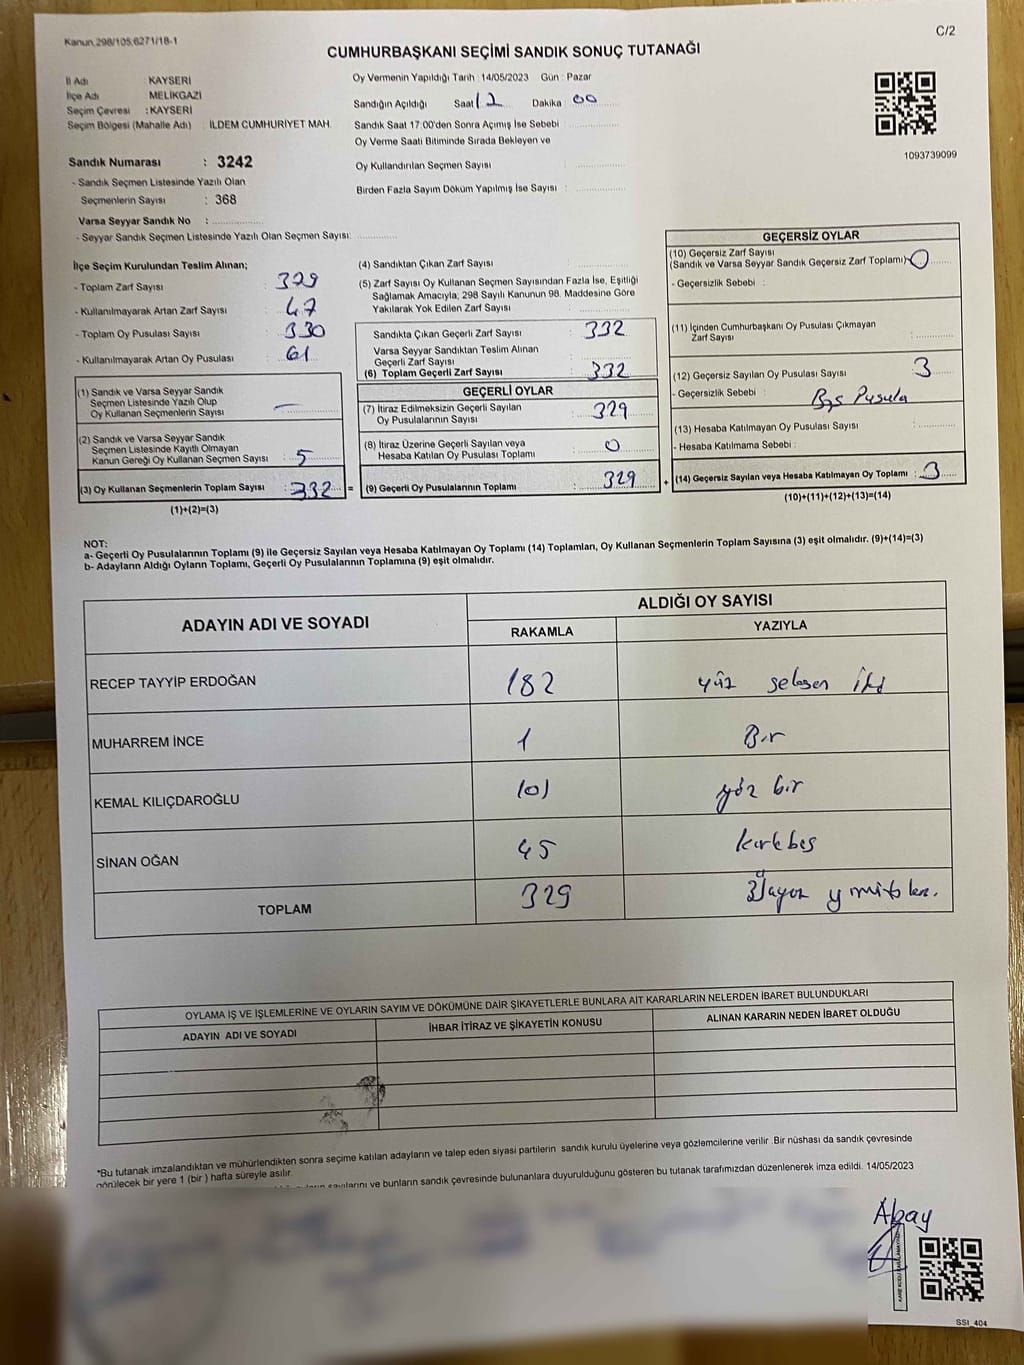 Kanun.298/105;6271/18-1
C/2
CUMHURBAŞKANI SEÇİMİ SANDIK SONUÇ TUTANAĞI
İl Adı : KAYSERİ
İlçe Adı : MELİKGAZİ
Seçim Çevresi : KAYSERİ
Seçim Bölgesi (Mahalle Adı) : İLDEM CUMHURİYET MAH.
Sandık Numarası : 3242
- Sandık Seçmen Listesinde Yazılı Olan
Seçmenlerin Sayısı : 368
Varsa Seyyar Sandık No :
- Seyyar Sandık Seçmen Listesinde Yazılı Olan Seçmen Sayısı:
Oy Vermenin Yapıldığı Tarih : 14/05/2023 Gün : Pazar
Sandığın Açıldığı Saat 12 Dakika 00
Sandık Saat 17:00'den Sonra Açımış İse Sebebi :
Oy Verme Saati Bitiminde Sırada Bekleyen ve
Oy Kullandırılan Seçmen Sayısı :
Birden Fazla Sayım Döküm Yapılmış İse Sayısı :
1093739099
İlçe Seçim Kurulundan Teslim Alınan;
- Toplam Zarf Sayısı : 379
- Kullanılmayarak Artan Zarf Sayısı : 47
- Toplam Oy Pusulası Sayısı : 330
- Kullanılmayarak Artan Oy Pusulası : 61
(1) Sandık ve Varsa Seyyar Sandık
Seçmen Listesinde Yazılı Olup
Oy Kullanan Seçmenlerin Sayısı : —
(2) Sandık ve Varsa Seyyar Sandık
Seçmen Listesinde Kayıtlı Olmayan
Kanun Gereği Oy Kullanan Seçmen Sayısı : 5
(3) Oy Kullanan Seçmenlerin Toplam Sayısı : 332 =
(1)+(2)=(3)
(4) Sandıktan Çıkan Zarf Sayısı :
(5) Zarf Sayısı Oy Kullanan Seçmen Sayısından Fazla İse, Eşitliği
Sağlamak Amacıyla; 298 Sayılı Kanunun 98. Maddesine Göre
Yakılarak Yok Edilen Zarf Sayısı :
Sandıkta Çıkan Geçerli Zarf Sayısı : 332
Varsa Seyyar Sandıktan Teslim Alınan
Geçerli Zarf Sayısı :
(6) Toplam Geçerli Zarf Sayısı : 332
GEÇERLİ OYLAR
(7) İtiraz Edilmeksizin Geçerli Sayılan
Oy Pusulalarının Sayısı : 329
(8) İtiraz Üzerine Geçerli Sayılan veya
Hesaba Katılan Oy Pusulası Toplamı : 0
(9) Geçerli Oy Pusulalarının Toplamı : 329 +
GEÇERSİZ OYLAR
(10) Geçersiz Zarf Sayısı
(Sandık ve Varsa Seyyar Sandık Geçersiz Zarf Toplamı) 0
- Geçersizlik Sebebi :
(11) İçinden Cumhurbaşkanı Oy Pusulası Çıkmayan
Zarf Sayısı :
(12) Geçersiz Sayılan Oy Pusulası Sayısı : 3
- Geçersizlik Sebebi : Boş Pusula
(13) Hesaba Katılmayan Oy Pusulası Sayısı :
- Hesaba Katılmama Sebebi :
(14) Geçersiz Sayılan veya Hesaba Katılmayan Oy Toplamı : 3
(10)+(11)+(12)+(13)=(14)
NOT:
a- Geçerli Oy Pusulalarının Toplamı (9) ile Geçersiz Sayılan veya Hesaba Katılmayan Oy Toplamı (14) Toplamları, Oy Kullanan Seçmenlerin Toplam Sayısına (3) eşit olmalıdır. (9)+(14)=(3)
b- Adayların Aldığı Oyların Toplamı, Geçerli Oy Pusulalarının Toplamına (9) eşit olmalıdır.
ADAYIN ADI VE SOYADI
ALDIĞI OY SAYISI
RAKAMLA
YAZIYLA
RECEP TAYYİP ERDOĞAN 182 yüz seksen iki
MUHARREM İNCE 1 Bir
KEMAL KILIÇDAROĞLU 101 yüz bir
SİNAN OĞAN 45 kırkbeş
TOPLAM 329
OYLAMA İŞ VE İŞLEMLERİNE VE OYLARIN SAYIM VE DÖKÜMÜNE DAİR ŞİKAYETLERLE BUNLARA AİT KARARLARIN NELERDEN İBARET BULUNDUKLARI
ADAYIN ADI VE SOYADI
İHBAR İTİRAZ VE ŞİKAYETİN KONUSU
ALINAN KARARIN NEDEN İBARET OLDUĞU
*Bu tutanak imzalandıktan ve mühürlendikten sonra seçime katılan adayların ve talep eden siyasi partilerin sandık kurulu üyelerine veya gözlemcilerine verilir. Bir nüshası da sandık çevresinde
görülecek bir yere 1 (bir ) hafta süreyle asılır.
sayılarını ve bunların sandık çevresinde bulunanlara duyurulduğunu gösteren bu tutanak tarafımızdan düzenlenerek imza edildi. 14/05/2023
Abay
SSI_404